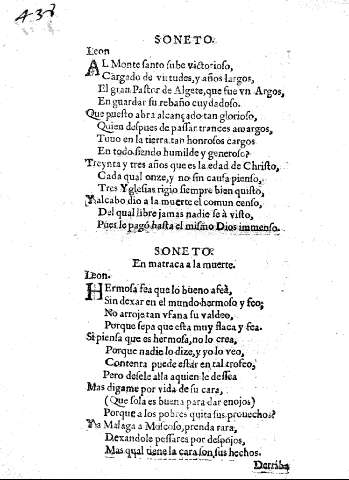 438
SONETO.
Leon
AL Monte santo sube victorioso,
Cargado de virtudes, y años largos,
El gran Pastor de Algete, que fue vn Argos,
En guardar su rebaño cuydadoso.
Que puesto abra alcançado tan glorioso,
Quien despues de passar trances amargos,
Tuuo en la tierra tan honrosos cargos
En todo siendo humilde y generoso?
Treynta y tres años que es la edad de Christo,
Cada qual onze, y no sin causa pienso,
Tres Yglesias rigio siempre bien quisto,
Y alcabo dio a la muerte el comun censo,
Del qual libre jamas nadie se à visto,
Pues le pagó hasta el mismo Dios immenso.
SONETO.
En matraca a la muerte.
Leon.
HErmosa fea que lo bueno afeà,
Sin dexar en el mundo hermoso y feo;
No arroje tan vfana su valdeo,
Porque sepa que esta muy flaca y fea.
Si piensa que es hermosa, no lo crea,
Porque nadie lo dize, y yo lo veo,
Contenta puede estar en tal trofeo,
Pero desele alla a quien le dessea
Mas digame por vida de su cara,
(Que sola es buena para dar enojos)
Porque a los pobres quita sus prouechos?
Ya Malaga a Moscoso, prenda rara,
Dexandole pessares por despojos,
Mas qual tiene la cara son, sus hechos.
Derriba